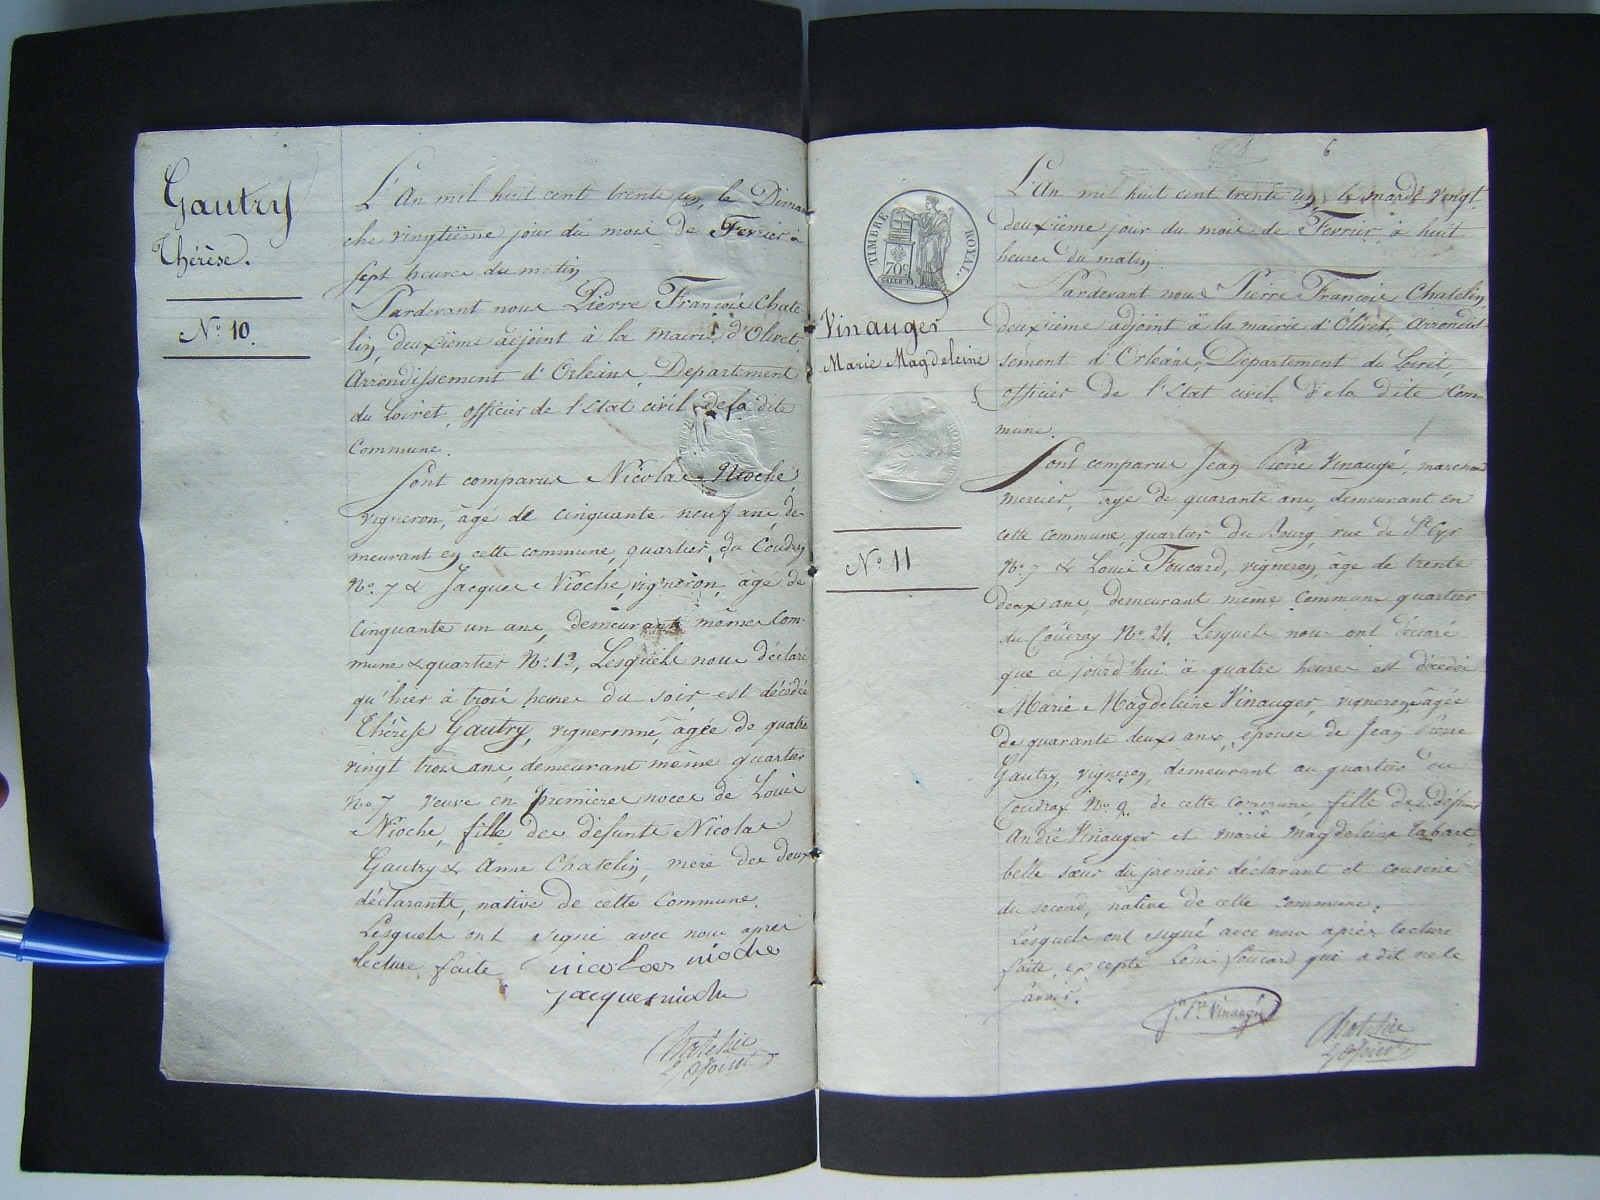 Gautry
Thérèse.
N.º 10.
L'An mil huit cent trente un, le Diman
che vingtième jour du mois de Fevrier à
sept heures du matin
Pardevant nous Pierre François Chate
lin, deuxième adjoint à la mairie d'Olivet,
Arrondissement d'Orléans, Departement
du Loiret, officier de l'Etat civil dela dite
Commune.
Sont comparus Nicolas Nioche
vigneron, âgé de cinquante neuf ans, de
meurant en cette commune, quartier du Coudray
Nº. 7 & Jacques Nioche, vigneron, âgé de
Cinquante un ans, demeurant même Com-
mune & quartier Nº. 13, Lesquels nous déclaré
qu'hier à trois heures du soir, est décédée
Thérèse Gautry, vigneronne, âgée de quatre
vingt trois ans, demeurant même quartier
Nº. 7 veuve en première noces de Louis
Nioche, fille des défunts Nicolas
Gautry & Anne Chatelin, mère des deux
déclarants, native de cette Commune.
Lesquels ont signé avec nous après
lecture faite nicolas nioche
jacques nioche
Chatelin
adjoint
6
TIMBRE ROYAL.
70c
Vinauger
Marie Magdeleine
Nº. 11
L'An mil huit cent trente un, le mardi vingt
deuxième jour du mois de Fevrier, à huit
heures du matin.
Pardevant nous Pierre François Chatelin
deuxième adjoint à la mairie d'Olivet, Arrondis-
sement d'Orléans, Département du Loiret,
officier de l'Etat civil dela dite Com
mune.
Sont comparus Jean Pierre Vinaugé, marchand
mercier, âgé de quarante ans, demeurant en
cette commune, quartier du Bourg, rue de St Cyr
Nº. 7 & Louis Foucard, vigneron, âgé de trente
deux ans, demeurant même Commune quartier
du Coudray Nº. 24. Lesquels nous ont déclaré
que ce jourd'hui à quatre heures est décédée
Marie Magdeleine Vinauger, vigneronne, âgée
de quarante deux ans, épouse de Jean Pierre
Gautry, vigneron, demeurant au quartier du
Coudray Nº. 9. de cette commune, fille de défunt
André Vinauger et marie magdeleine Tabart,
belle sœur du premier déclarant et cousine
du second, native de cette commune.
Lesquels ont signé avec nous après lecture
faite, excepté Louis foucard qui a dit ne le
savoir.
J. Pre Vinaugé
Chatelin
adjoint